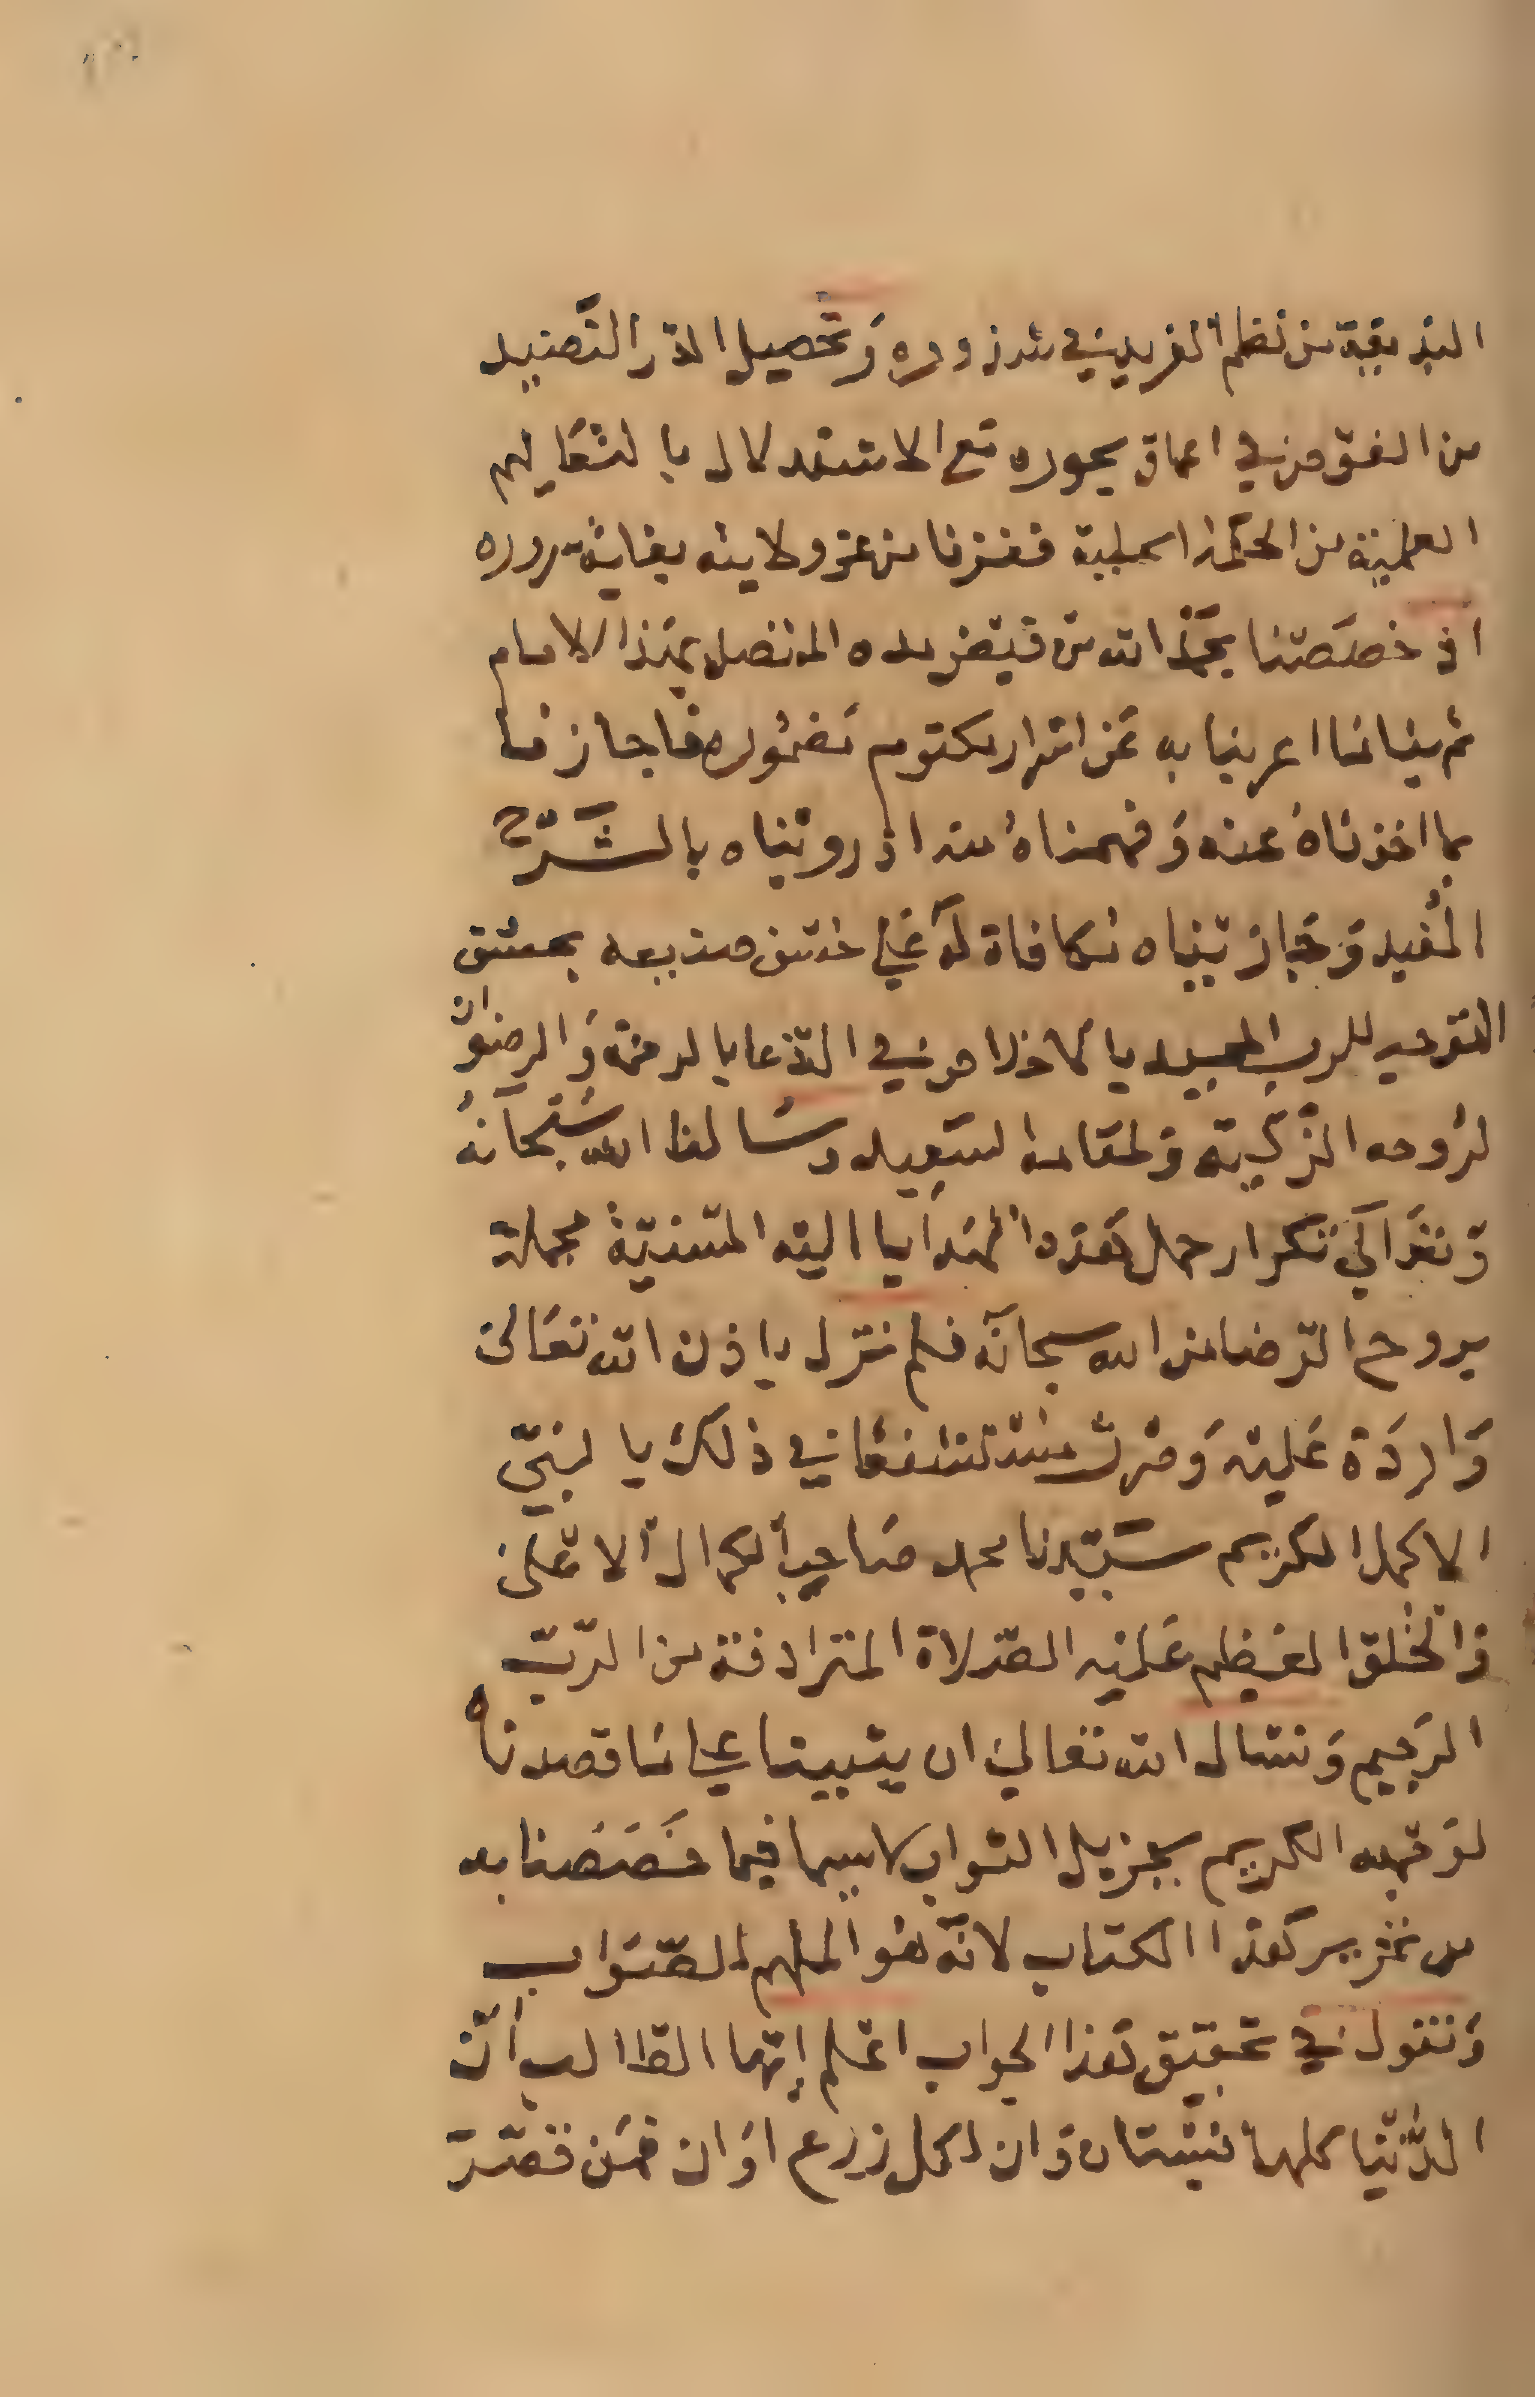 البديعة من نظم الفريد في شذروره وتحصيل الدر النضيد
من الغوص في اعماق بحوره مع الاستدلال بالتعاليم
العلمية من الحكمة الجلية ففزنا من عز ولايته بغاية سروره
اذ خصصنا بحمد الله من فيض يده المتصل بهذا الامام
ثم بيان ما اعربنا به عن اسرار مكتوم مضموره فاجازنا
بما اخذناه عنه وفهمناه منه اذ رويناه بالشرح
المفيد وجازيناه مكافاة له على حسن صنيعه بحسن
التوحيد للرب المجيد بالاخلاص في الدعا بالرحمة والرضوان
لروحه الزكية ولمقامه السعيد وسالنا الله سبحانه
وتعالى تكرار حمل هذه الهدايا اليه السنية مجملة
بروح الرضا من الله سبحانه فلم تزل باذن الله تعالى
واردة عليه وصرت مستشفعا في ذلك بالنبي
الاكمل الكريم سيدنا محمد صاحب الكمال الاعلى
والخلق العظيم عليه الصلاة المترادفة من الرب
الرحيم ونسال الله تعالى ان يثيبنا على ما قصدناه
لوجهه الكريم بجزيل الثواب لاسيما فيما خصصنا به
من تحرير هذا الكتاب لانه هو الملهم للصواب
ونقول في تحقيق هذا الجواب اعلم ايها الطالب ان
الدنيا كلها بستان وان لكل زرع اوان فمن قصد